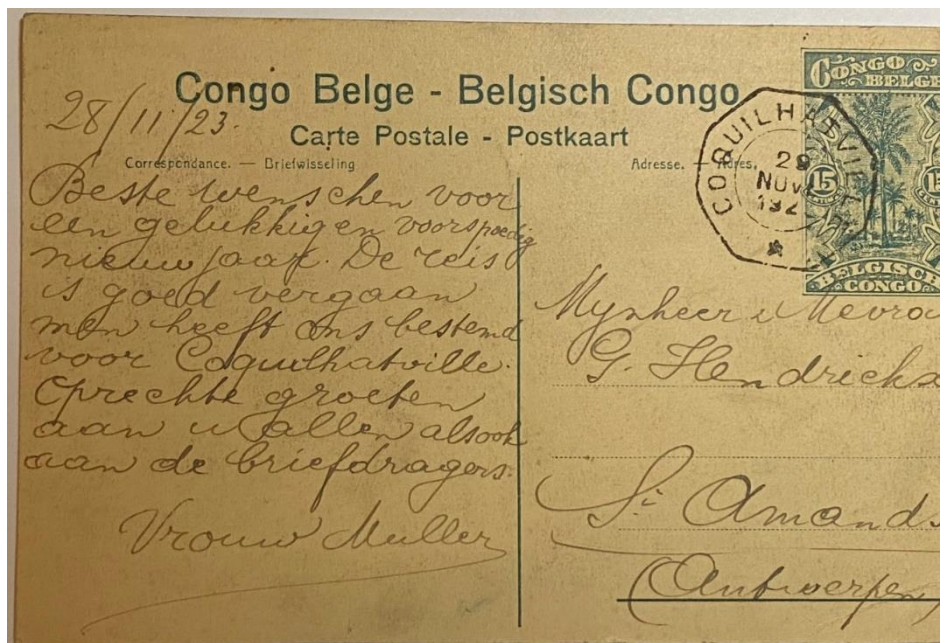 Congo Belge - Belgisch Congo
Carte Postale - Postkaart
Correspondance. — Briefwisseling
Adresse. — Adres.
28/11/23.
Beste wenschen voor
een gelukkig en voorspoedig
nieuwjaar. De reis
is goed vergaan
men heeft ons bestemd
voor Coquilhatville.
Oprechte groeten
aan u allen alsook
aan de briefdragers.
Vrouw Muller
CONGO
BELGE
15
BELGISCH
CONGO
COQUILHATVILLE
29
NOV
192
Mynheer & Mevrou
G. Hendrickx
St Amands
(Antwerpen)